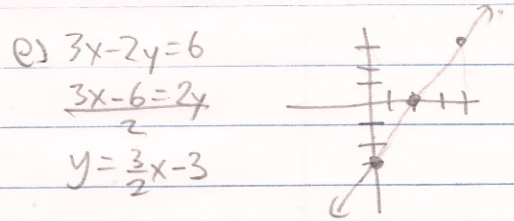 e) 3x-2y=6
3x-6=2y
2
y=3/2x-3